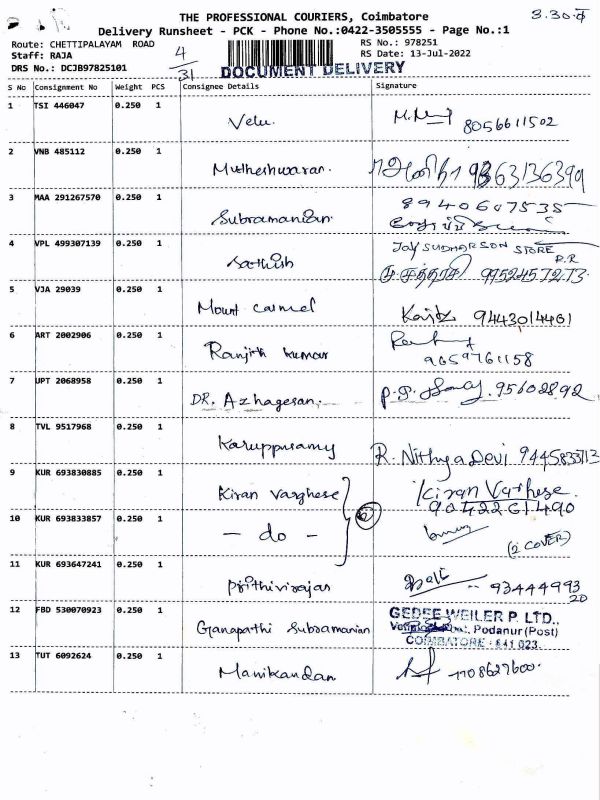 3.30
THE PROFESSIONAL COURIERS, Coimbatore
Delivery Runsheet - PCK - Phone No.:0422-3505555 - Page No.:1
Route: CHETTIPALAYAM ROAD
RS No.: 978251
Staff: RAJA
4/31
RS Date: 13-Jul-2022
DRS No.: DCJB97825101
DOCUMENT DELIVERY
S No Consignment No Weight PCS Consignee Details Signature
1 TSI 446047 0.250 1 Velu. 8056611502
2 VNB 485112 0.250 1 Mutheshwaran.
3 MAA 291267570 0.250 1 Subramanian. 8940607535
4 VPL 499307139 0.250 1 Sathish JOY SUDHARSON STORE P.R
9952457273
5 VJA 29039 0.250 1 Mount Carmel 9443014461
6 ART 2002906 0.250 1 Ranjith kumar 9659761158
7 UPT 2068958 0.250 1 DR. Azhagesan. 95602892
8 TVL 9517968 0.250 1 Karuppusamy R. Nithya Devi
9 KUR 693830885 0.250 1 Kiran Varghese Kiran Varhese
9042261490
10 KUR 693833857 0.250 1 - do - (2 COVER)
11 KUR 693647241 0.250 1 Prithivirajan 9344499320
12 FBD 530070923 0.250 1 Ganapathi Subramanian GEDEE WEILER P. LTD.,
Podanur (Post)
COIMBATORE - 641 023
13 TUT 6092624 0.250 1 Manikandan 7708627600